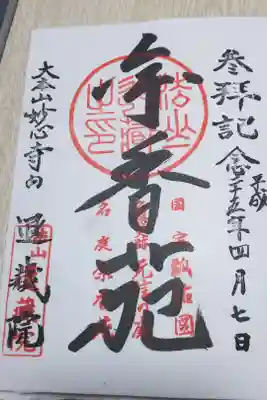 参拝記念 平成二十五年四月七日
国宝瓢鮎図
元信の庭
余香苑
名庭余香苑
大本山妙心寺内
退蔵院